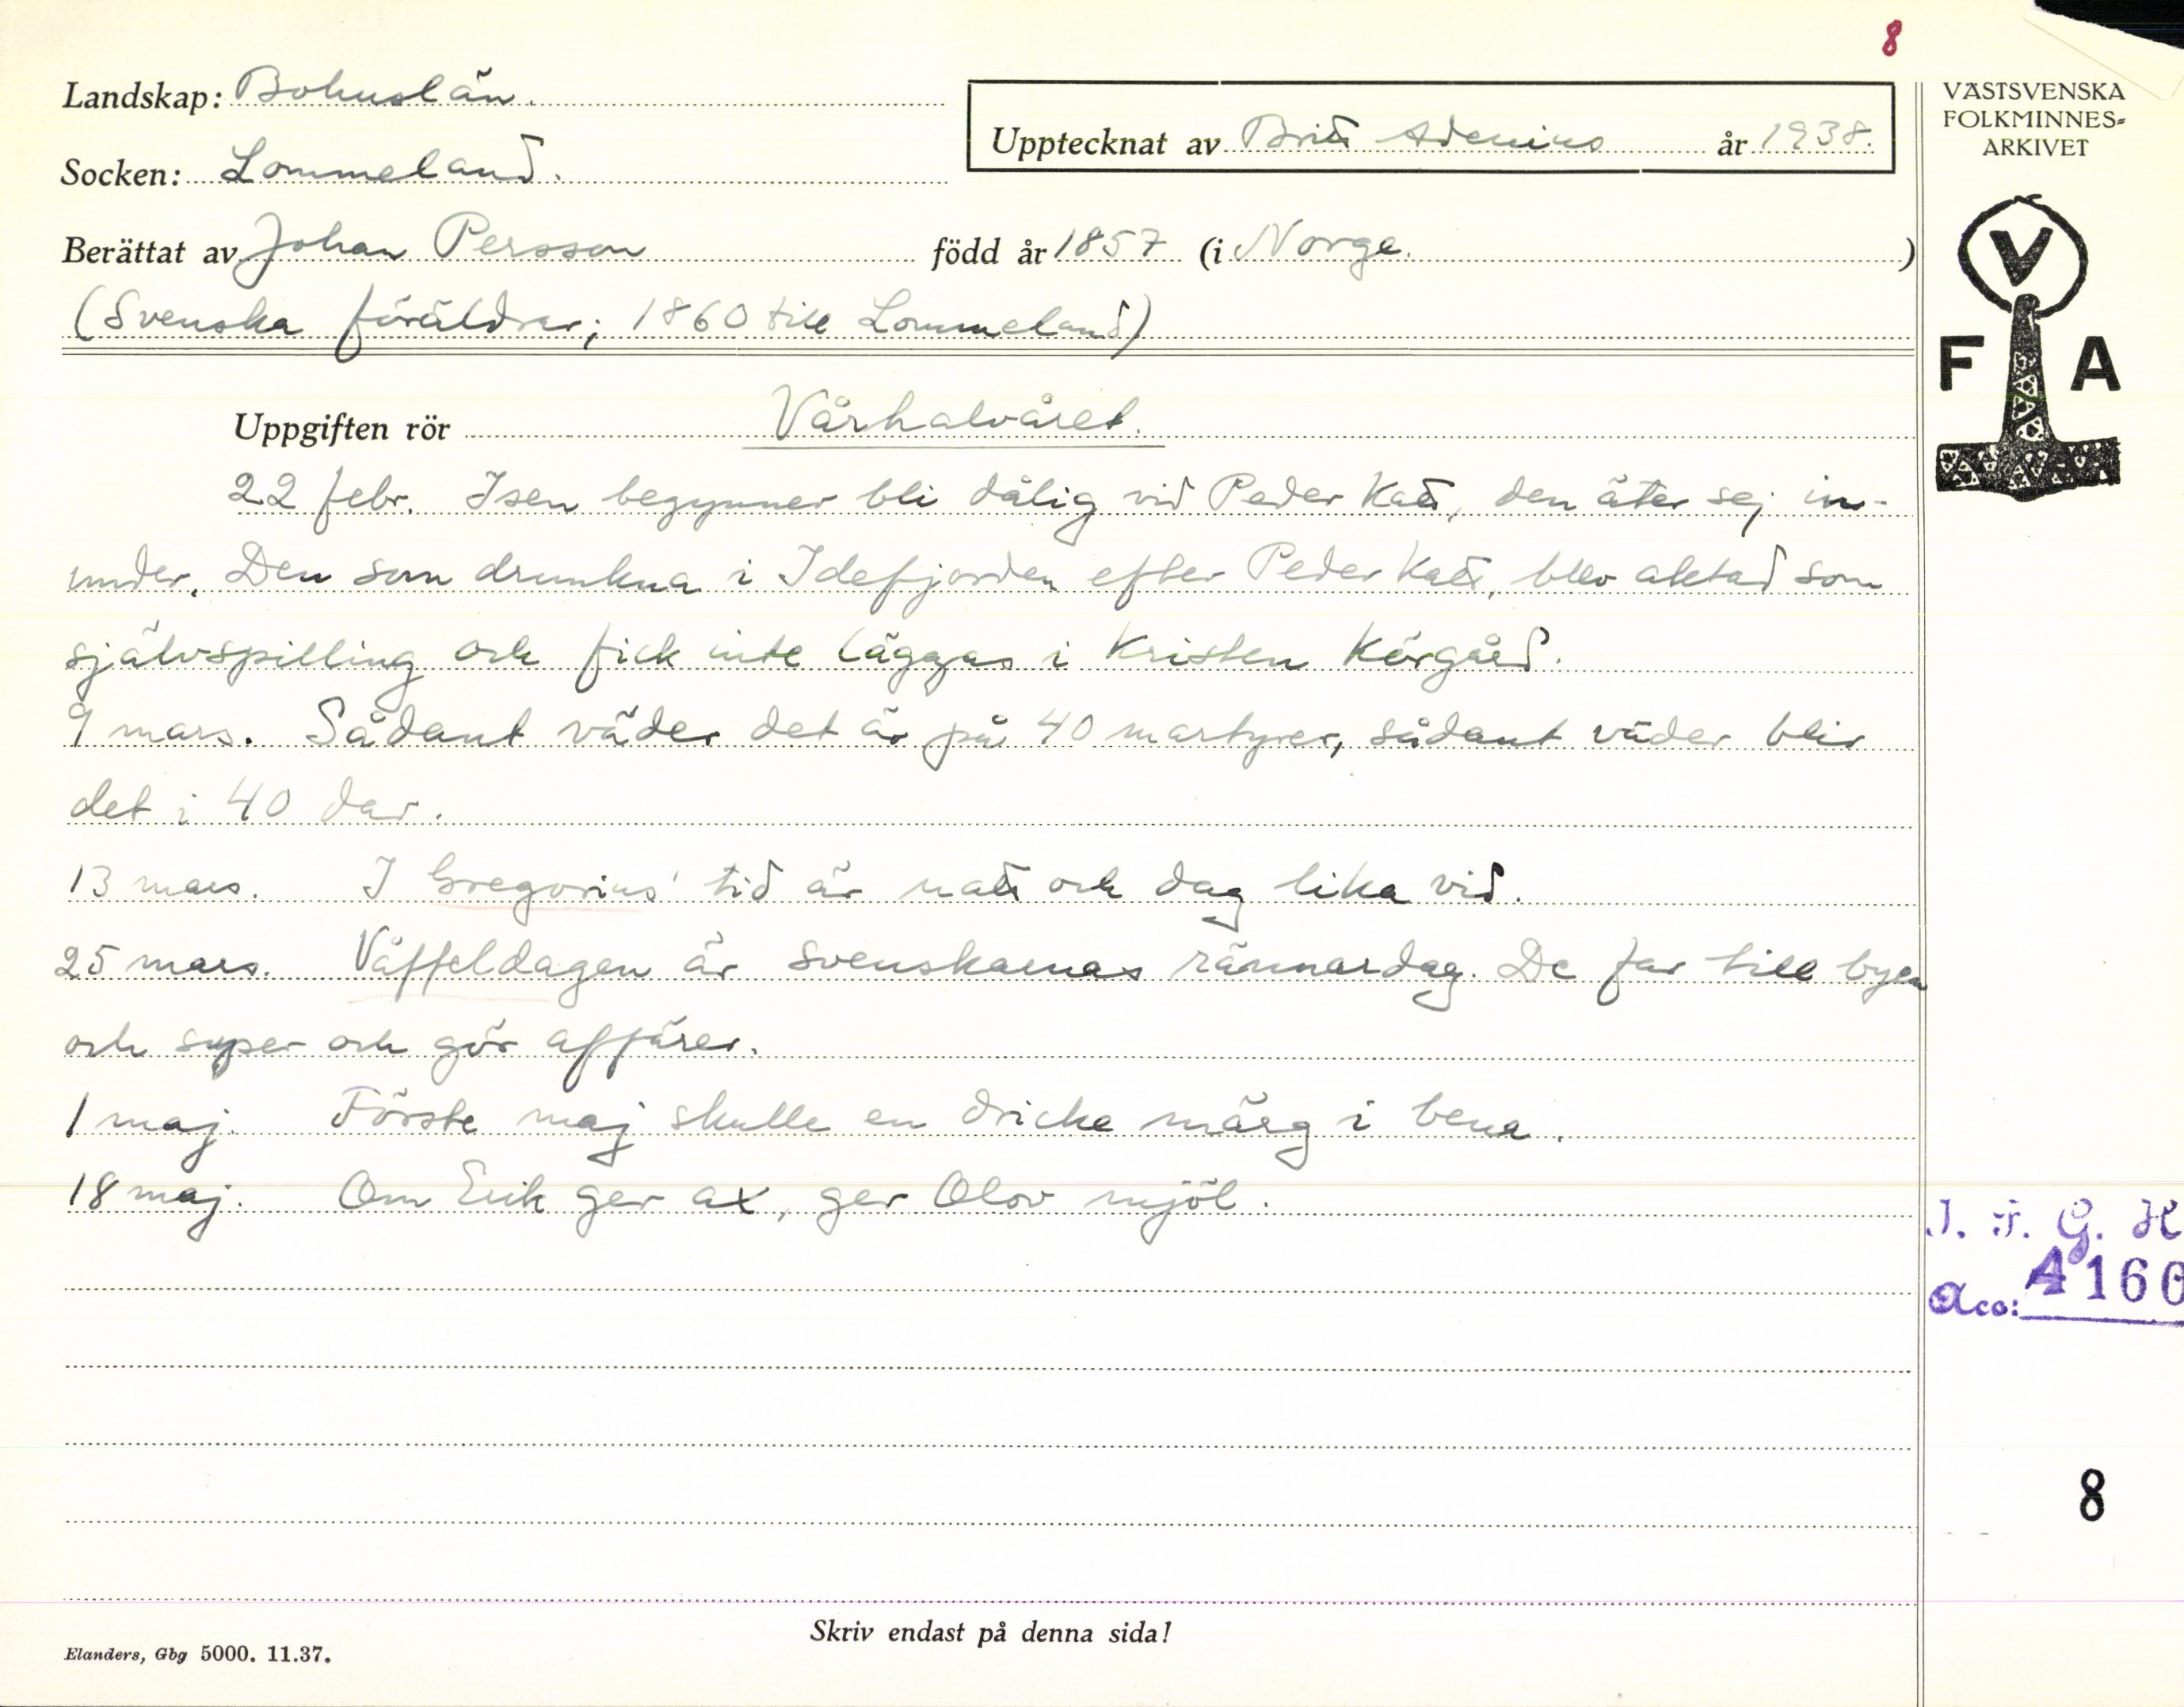 8
Landskap: Bohuslän.
Socken: Lommeland.
Upptecknat av Britt Adenius år 1938.
Berättat av Johan Persson född år 1857 (i Norge.)
(Svenska föräldrar; 1860 till Lommeland)
VÄSTSVENSKA
FOLKMINNES=
ARKIVET
V
F A
Uppgiften rör Vårhalvåret.
22 febr. Isen begynner bli dålig vid Peder Katt, den äter sej in-
under. Den som drunkna i Idefjorden efter Peder Katt, blev aktad som
självspilling och fick inte läggas i Kristen Körgård.
9 mars. Sådant väder det är på 40 martyrer, sådant väder blir
det i 40 dar.
13 mars. I Gregorius' tid är natt och dag lika vid.
25 mars. Våffeldagen är svenskarnas rännardag. De far till byen
och super och gör affärer.
1 maj. Förste maj skulle en dricke märg i bena.
18 maj. Om Erik ger ax, ger Olov mjöl.
I. F. G. H
Acc: 4160
8
Skriv endast på denna sida!
Elanders, Gbg 5000. 11.37.